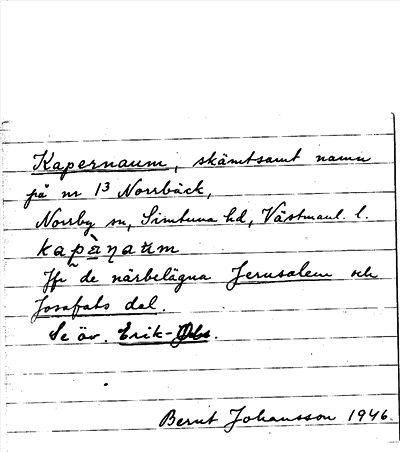 Kapernaum, skämtsamt namn
på nr 13 Norrbäck,
Norrby sn, Simtuna hd, Västmanl. l.
Jfr de närbelägna Jerusalem och
Josafats dal.
Se äv. Erik-Ols.
Bernt Johansson 1946.